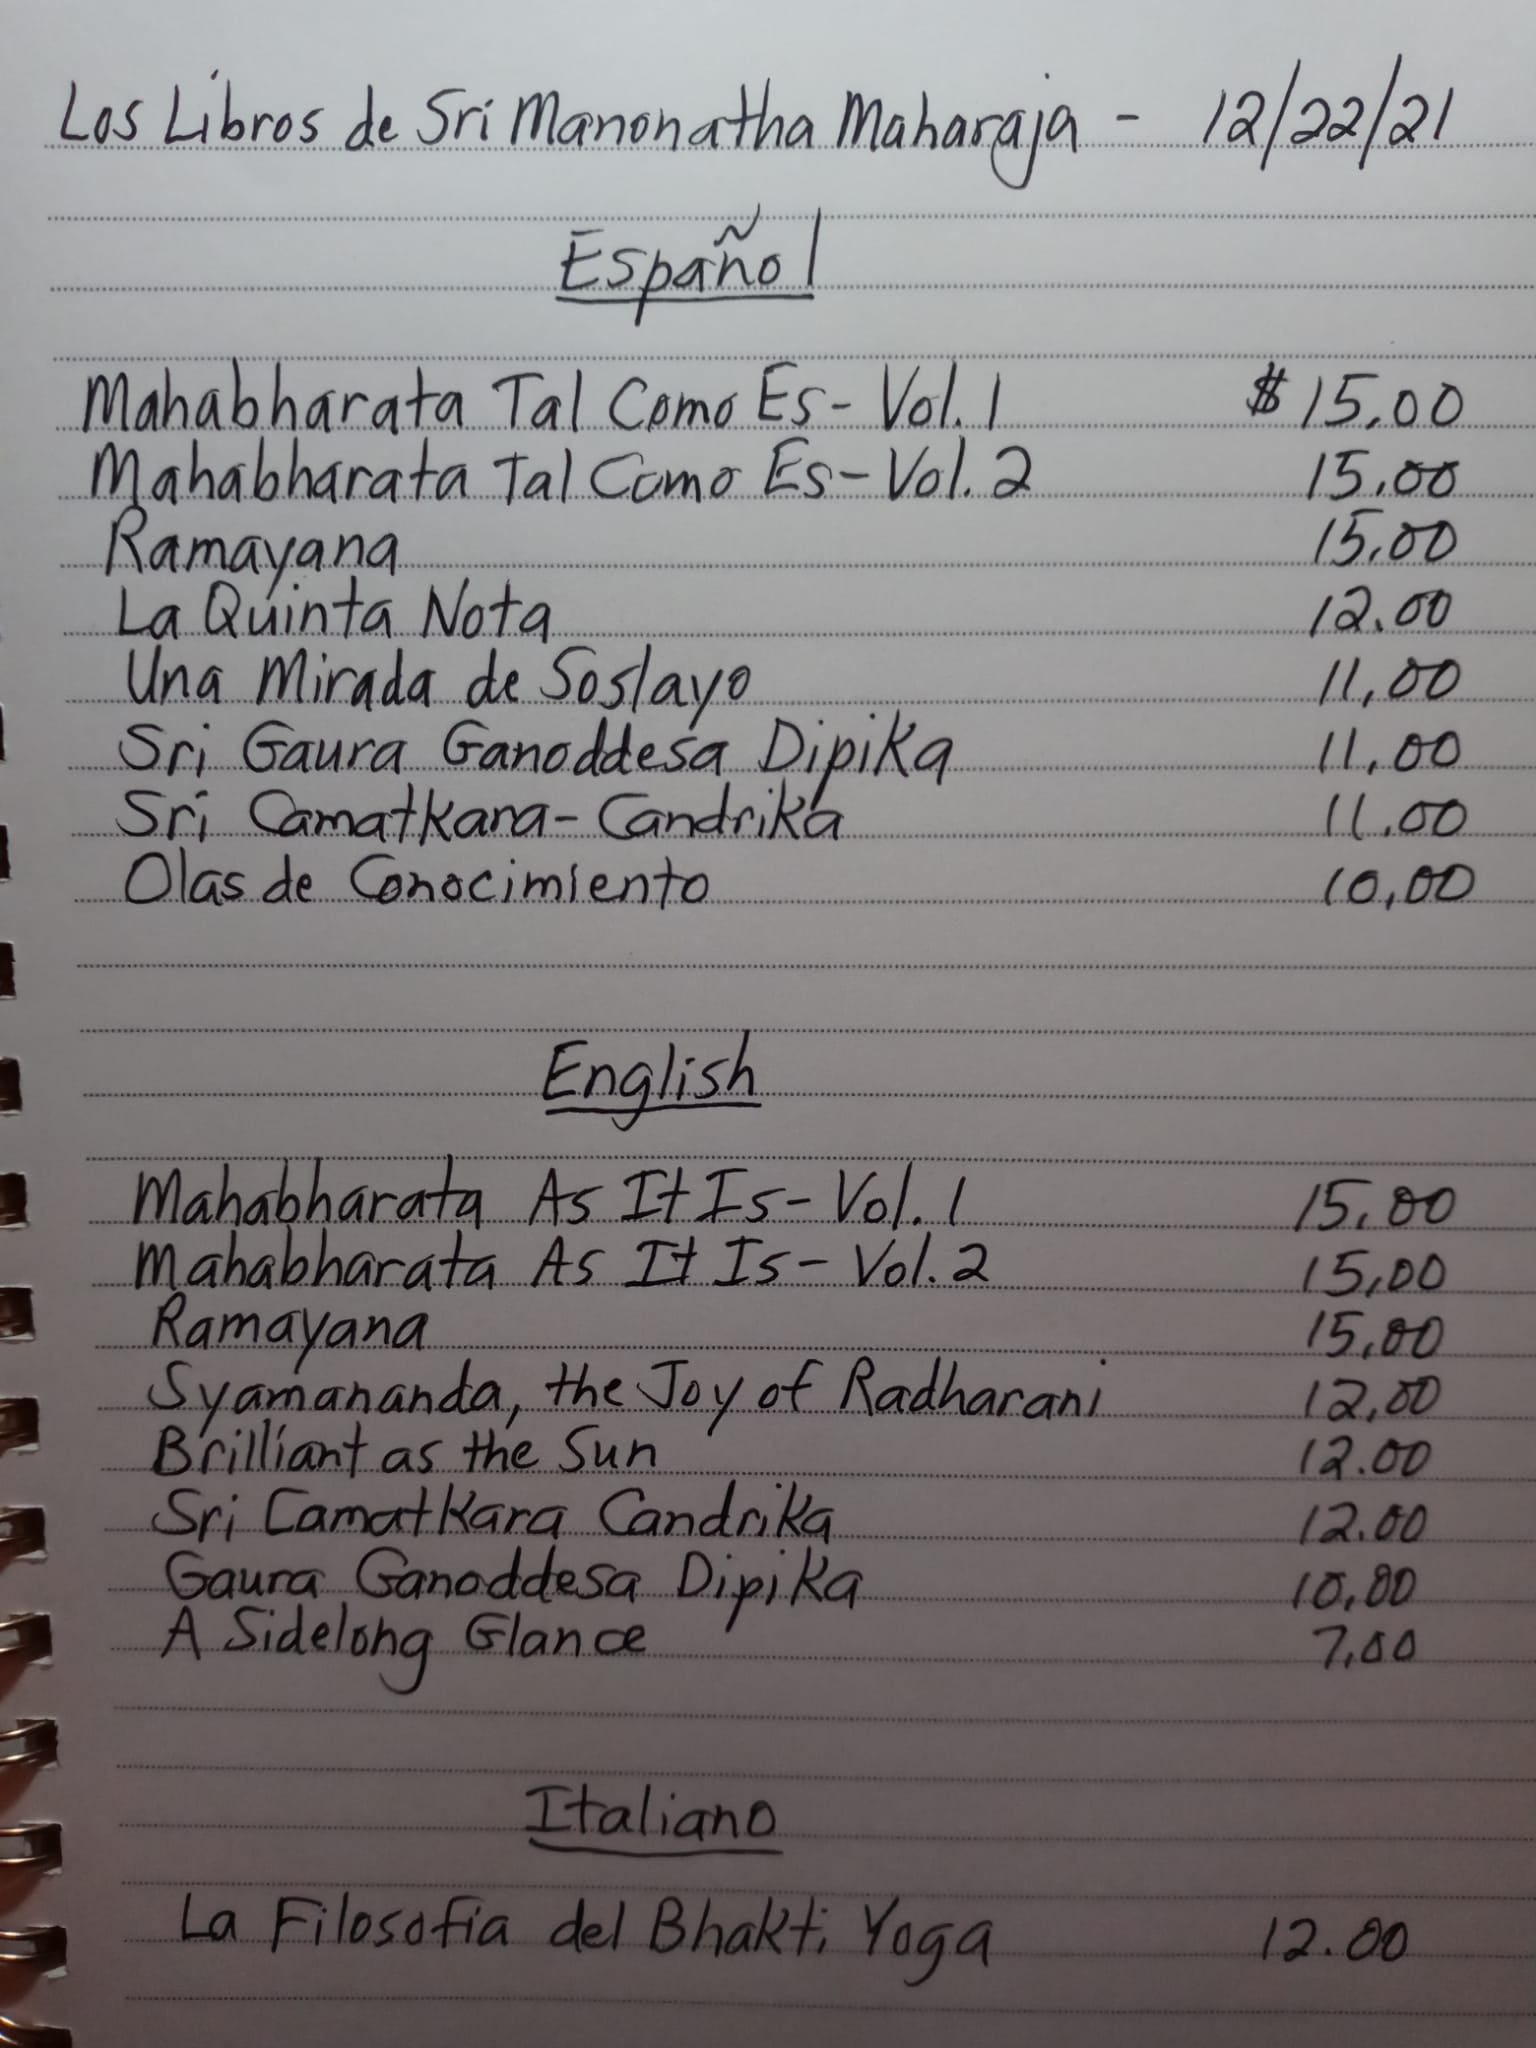 Los Libros de Sri Manonatha Maharaja - 12/22/21
Español
Mahabharata Tal Como Es - Vol. 1 $15.00
Mahabharata Tal Como Es - Vol. 2 15.00
Ramayana 15.00
La Quinta Nota 12.00
Una Mirada de Soslayo 11.00
Sri Gaura Ganoddesa Dipika 11.00
Sri Camatkara-Candrika 11.00
Olas de Conocimiento 10.00
English
Mahabharata As It Is - Vol. 1 15.00
Mahabharata As It Is - Vol. 2 15.00
Ramayana 15.00
Syamananda, the Joy of Radharani 12.00
Brilliant as the Sun 12.00
Sri Camatkara Candrika 12.00
Gaura Ganoddesa Dipika 10.00
A Sidelong Glance 7.00
Italiano
La Filosofia del Bhakti Yoga 12.00